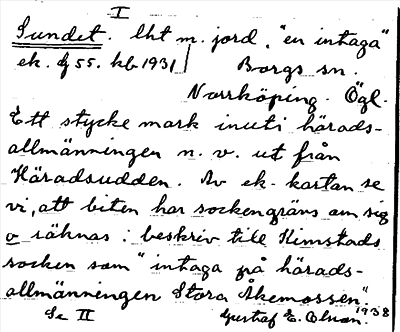 I
Sundet. lht m. jord, "en intaga"
ek. bf 55. kb 1931 Borgs sn.
Norrköping. Ögl.
Ett stycke mark inuti härads-
allmänningen n. v. ut från
Häradsudden. Av ek. kartan se
vi, att biten har sockengräns om sig
o räknas i beskriv till Kimstads
socken som "intaga på härads-
allmänningen Stora Åkemossen."
Se II Gustaf E. Olson. 1938